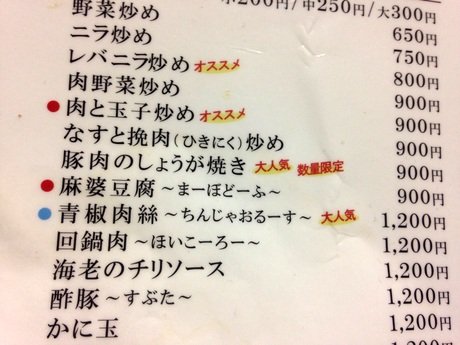 小200円/中250円/大300円
野菜炒め 650円
ニラ炒め 750円
レバニラ炒め オススメ 800円
肉野菜炒め 900円
●肉と玉子炒め オススメ 900円
なすと挽肉(ひきにく)炒め 900円
豚肉のしょうが焼き 大人気 数量限定 900円
●麻婆豆腐～まーぼどーふ～ 900円
●青椒肉絲～ちんじゃおるーす～ 大人気 1,200円
回鍋肉～ほいこーろー～ 1,200円
海老のチリソース 1,200円
酢豚～すぶた～ 1,200円
かに玉 1,200円